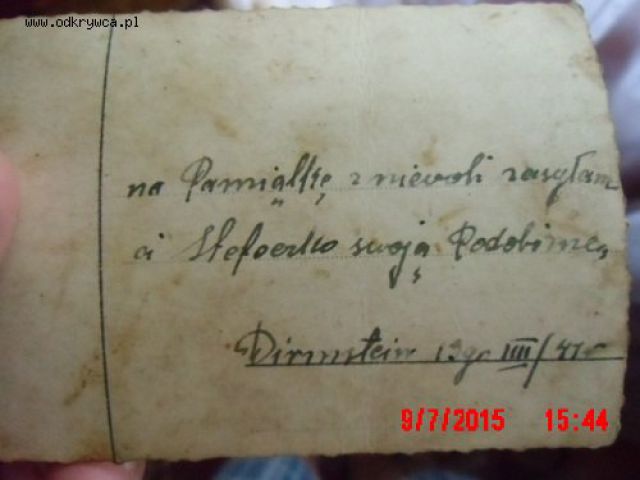 www.odkrywca.pl
na Pamiąlkę z niewoli zasyłam
ci swoją Podobiznę
Dirmstein 19go IIII/41r
9/7/2015 15:44